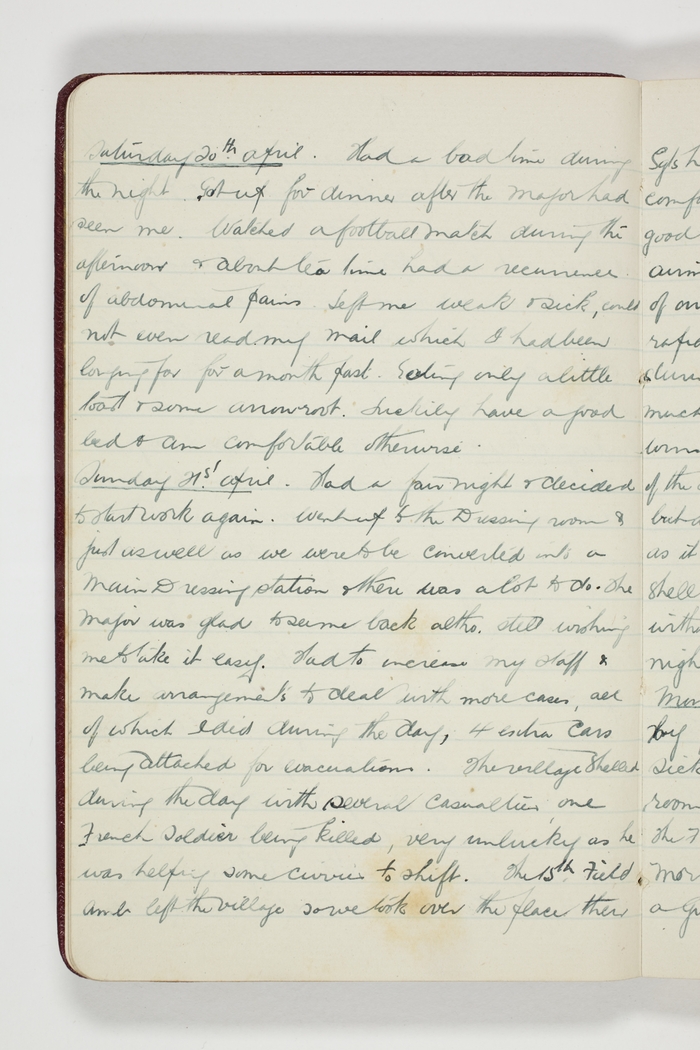 Saturday 20th April. Had a bad time during
the night. Got up for dinner after the Major had
seen me. Watched a football match during the
afternoon & about tea time had a recurrence
of abdominal pains. Left me weak & sick, could
not even read my mail which I had been
longing for for a month past. Eating only a little
toast & some arrowroot. Luckily have a good
bed & am comfortable otherwise.
Sunday 21st April. Had a fair night & decided
to start work again. Went up to the Dressing room &
just as well as we were to be converted into a
Main Dressing station & there was a lot to do. The
Major was glad to see me back altho. still wishing
me to take it easy. Had to increase my staff &
make arrangements to deal with more cases, all
of which I did during the day, 4 extra cars
being attached for evacuations. The village shelled
during the day with several casualties one
French soldier being killed, very unlucky as he
was helping some civvies to shift. The 15th Field
Amb left the village so we took over the place their
Sgts
good
of
much
of the
but
as it
shell
night
Mor
sick
room